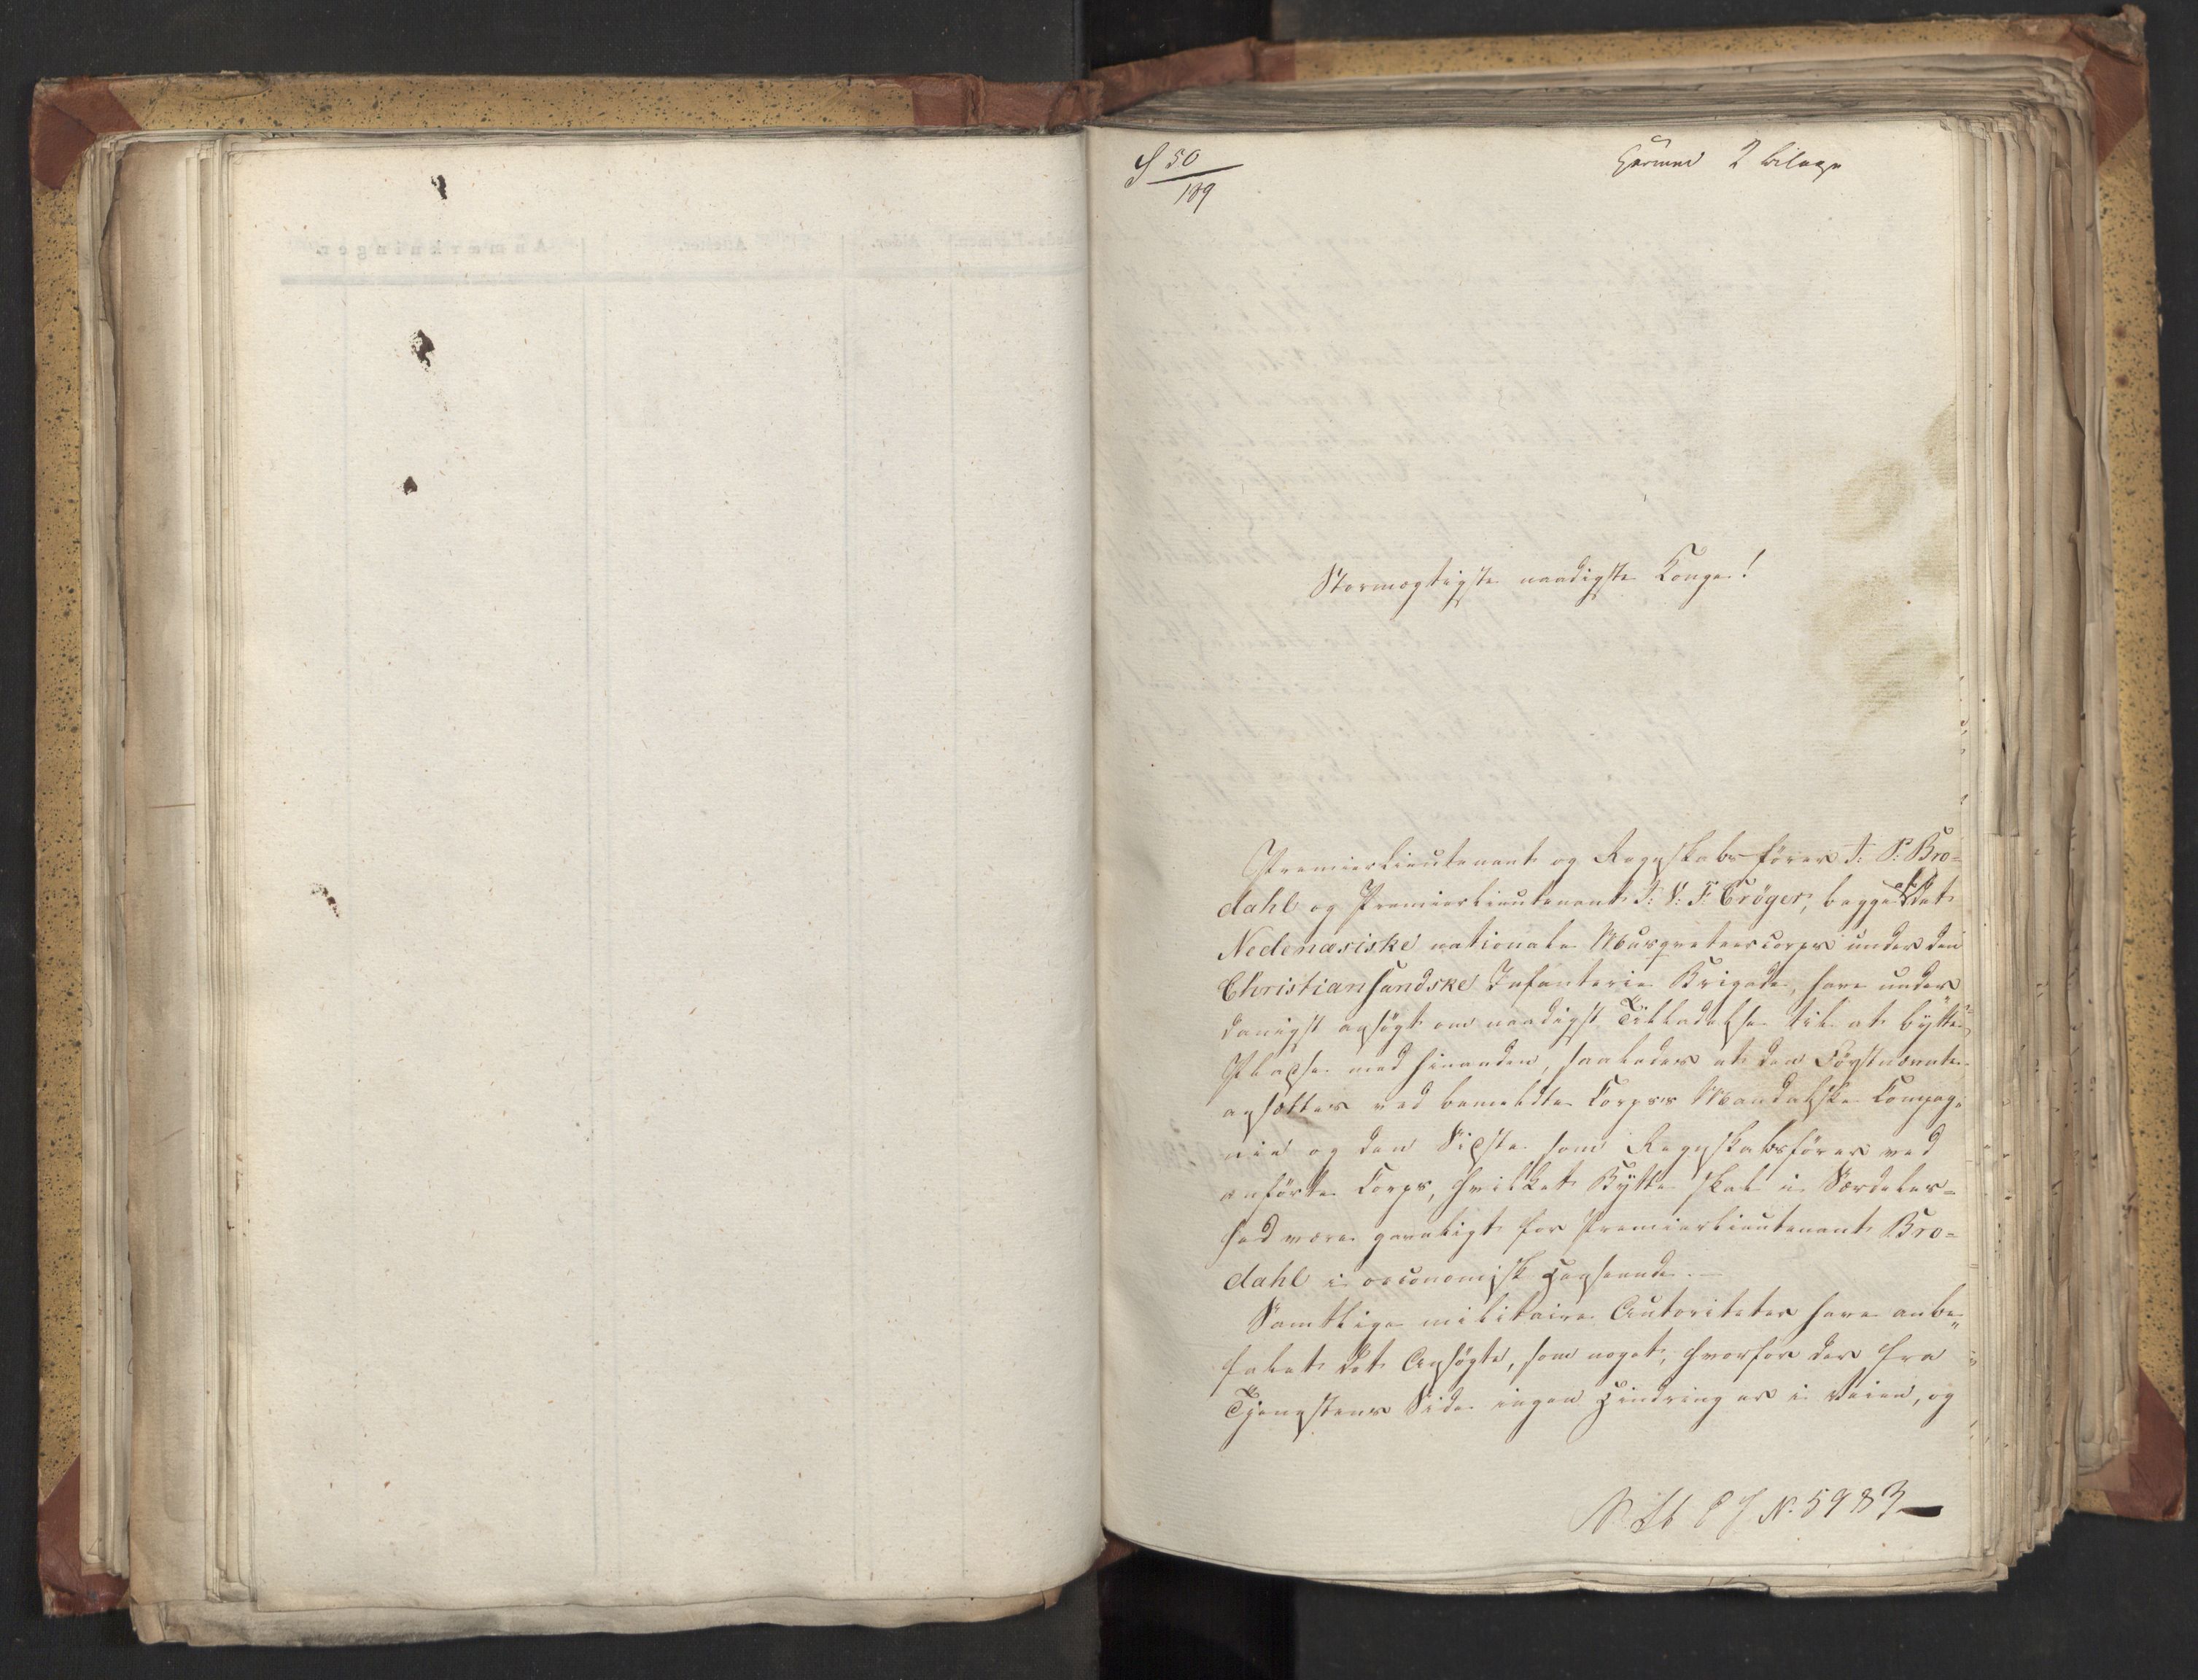 S 50/189
Hermed 2 bilage
Stormægtigste naadigste Konge!
Premierlieutenant og Regnskabsfører J: P: Bro-
dahl og Premierlieutenant J: V: F: Crøger, begge af det
Nedenæsiske nationale Musqveteercorps under den
Christiansandske Infanterie Brigade, have under
danigst ansøgt om naadigst Tilladelse til at bytte
Pladse med hinanden, saaledes at den Førstnævnte
ansættes ved bemeldte Corps's Mandalske Compag-
nie og den Sidste som Regnskabsfører ved
anførte Corps, hvilket Bytte skal i Særdeles-
hed være gavnligt for Premierlieutenant Bro-
dahl i oeconomisk Henseende. —
Samtlige militaire Autoriteter have anbe-
falet det Ansøgte, som noget, hvorfor der fra
Tjenestens Side ingen Hindring er i Veien, og
No. 5983
Anmærkninger.
Afsked.
Alder.